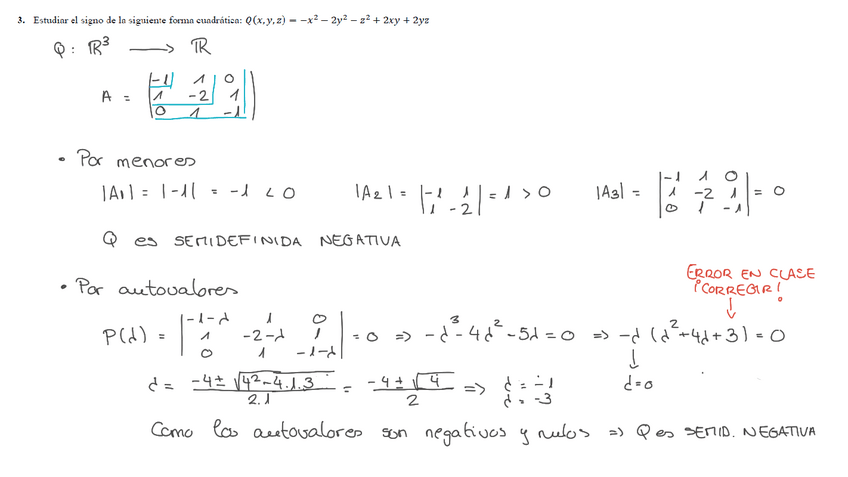 3. Estudiar el signo de la siguiente forma cuadrática: Q(x, y, z) = −x² − 2y² − z² + 2xy + 2yz
Q : ℝ³ ⟶ ℝ
A = | -1 1 0 |
| 1 -2 1 |
| 0 1 -1 |
• Por menores
|A₁| = |-1| = -1 < 0 |A₂| = |-1 1; 1 -2| = 1 > 0 |A₃| = |-1 1 0; 1 -2 1; 0 1 -1| = 0
Q es SEMIDEFINIDA NEGATIVA
ERROR EN CLASE
¡CORREGIR!
• Por autovalores
P(λ) = |-1-λ 1 0; 1 -2-λ 1; 0 1 -1-λ| = 0 => -λ³-4λ²-5λ = 0 => -λ (λ²+4λ+3) = 0
λ = (-4 ± √(4²-4.1.3)) / 2.1 = (-4 ± √4) / 2 => λ = -1 λ = -3 λ=0
Como los autovalores son negativos y nulos => Q es SEMID. NEGATIVA